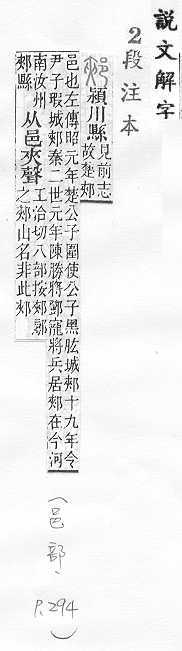 說文解字
2段注本
潁川縣
見前志
故楚郟
邑也左傳昭元年楚公子圍使公子黑肱城郟十九年令
尹子瑕城郟秦二世元年陳勝將鄧龍將兵居郟在今河
南汝州
郟縣
从邑夾聲
工洽切八部按郟鄏
之郟山名非此郟
(邑部、P.294)